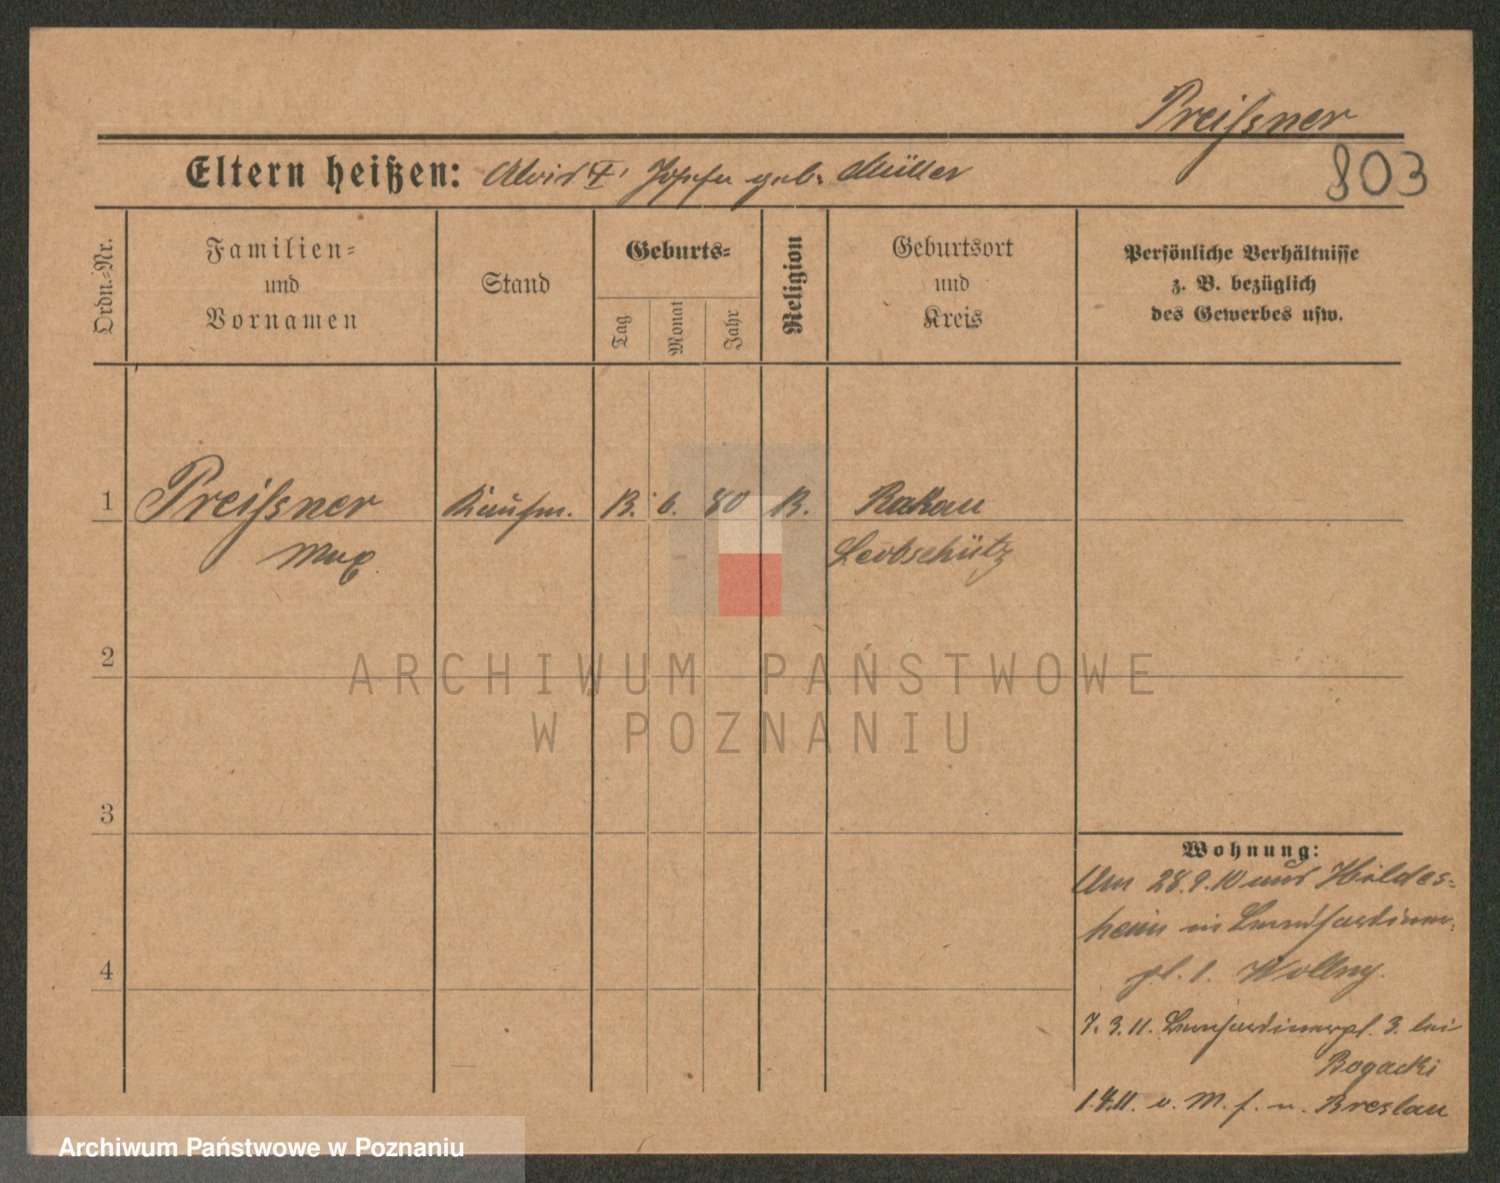 Preißner
803
Eltern heißen: Alois † Josefa geb. Müller
Ordn.-Nr.
Familien-
und
Vornamen
Stand
Geburts-
Tag
Monat
Jahr
Religion
Geburtsort
und
Kreis
Persönliche Verhältnisse
z. B. bezüglich
des Gewerbes usw.
1
Preißner
Max
Kaufm.
13.
6.
80
K.
Rakau
Leobschütz
2
3
4
Wohnung:
Am 28.9.10 aus Hildes-
heim in Bernhardiner-
pl. 1. Wollny.
7. 3. 11. Bernhardinerpl. 3. bei
Bogacki
1.4.11. v. M. f. n. Breslau
ARCHIWUM PAŃSTWOWE
W POZNANIU
Archiwum Państwowe w Poznaniu